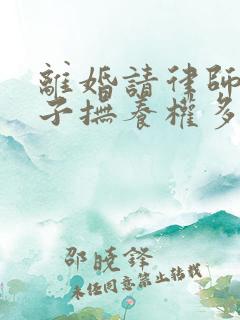 離婚請律師
子撫養權多
邵曉鋒
未經同意禁止轉載